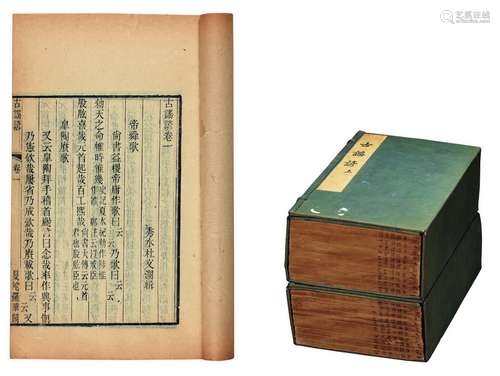 古謠諺卷一
秀水杜文瀾輯
帝舜歌
尚書益稷帝庸作歌曰云云乃歌曰云云
勑天之命惟時惟幾
股肱喜哉元首起哉百工熙哉尚書大傳云元首君也股肱臣也
皋陶賡歌
又云皋陶拜手稽首颺言曰念哉率作興事慎
乃憲欽哉屢省乃成欽哉乃賡載歌曰云云又
古謠諺
卷一
曼陀羅華閣
古謠諺上